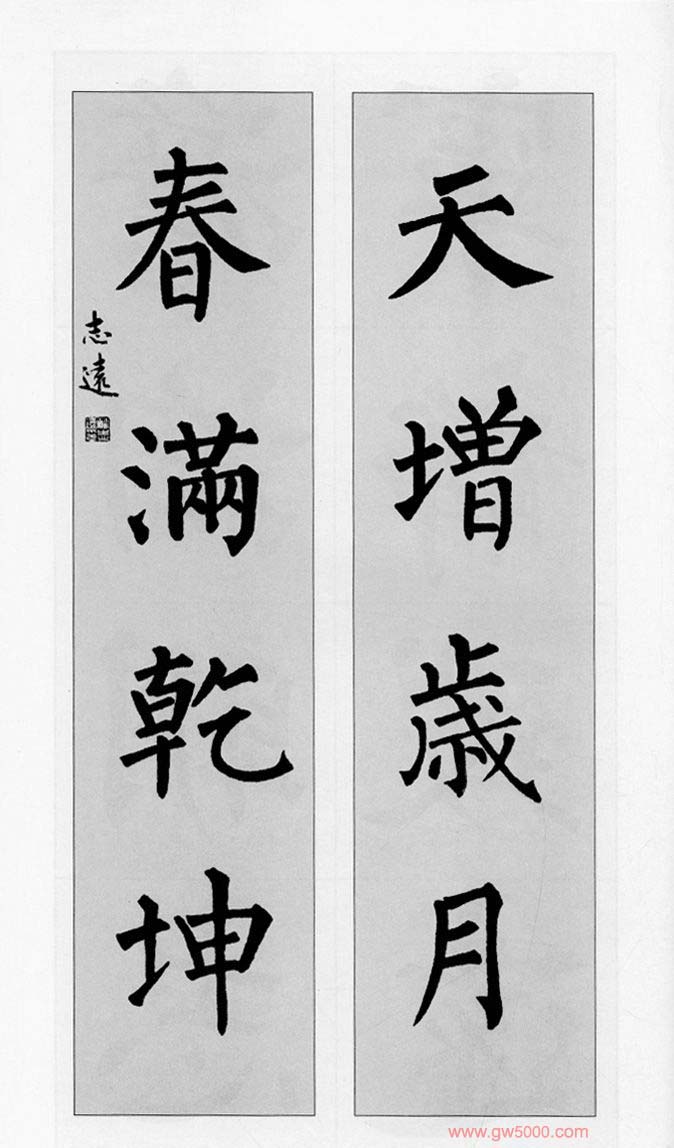 天增歲月
春滿乾坤
志遠
www.gw5000.com